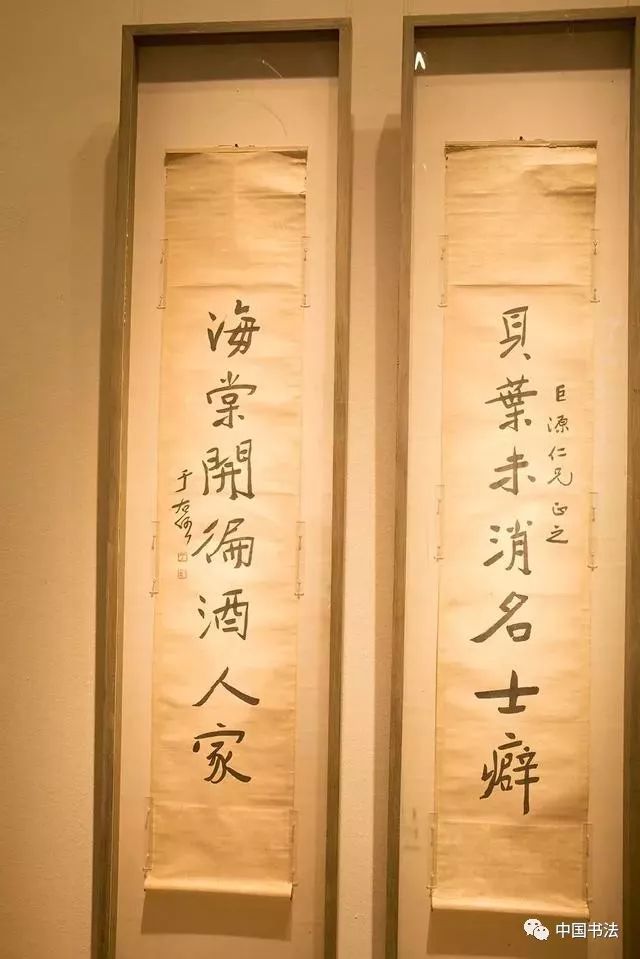 貝葉未消名士癖
巨源仁兄正之
海棠開徧酒人家
于右任
中国书法